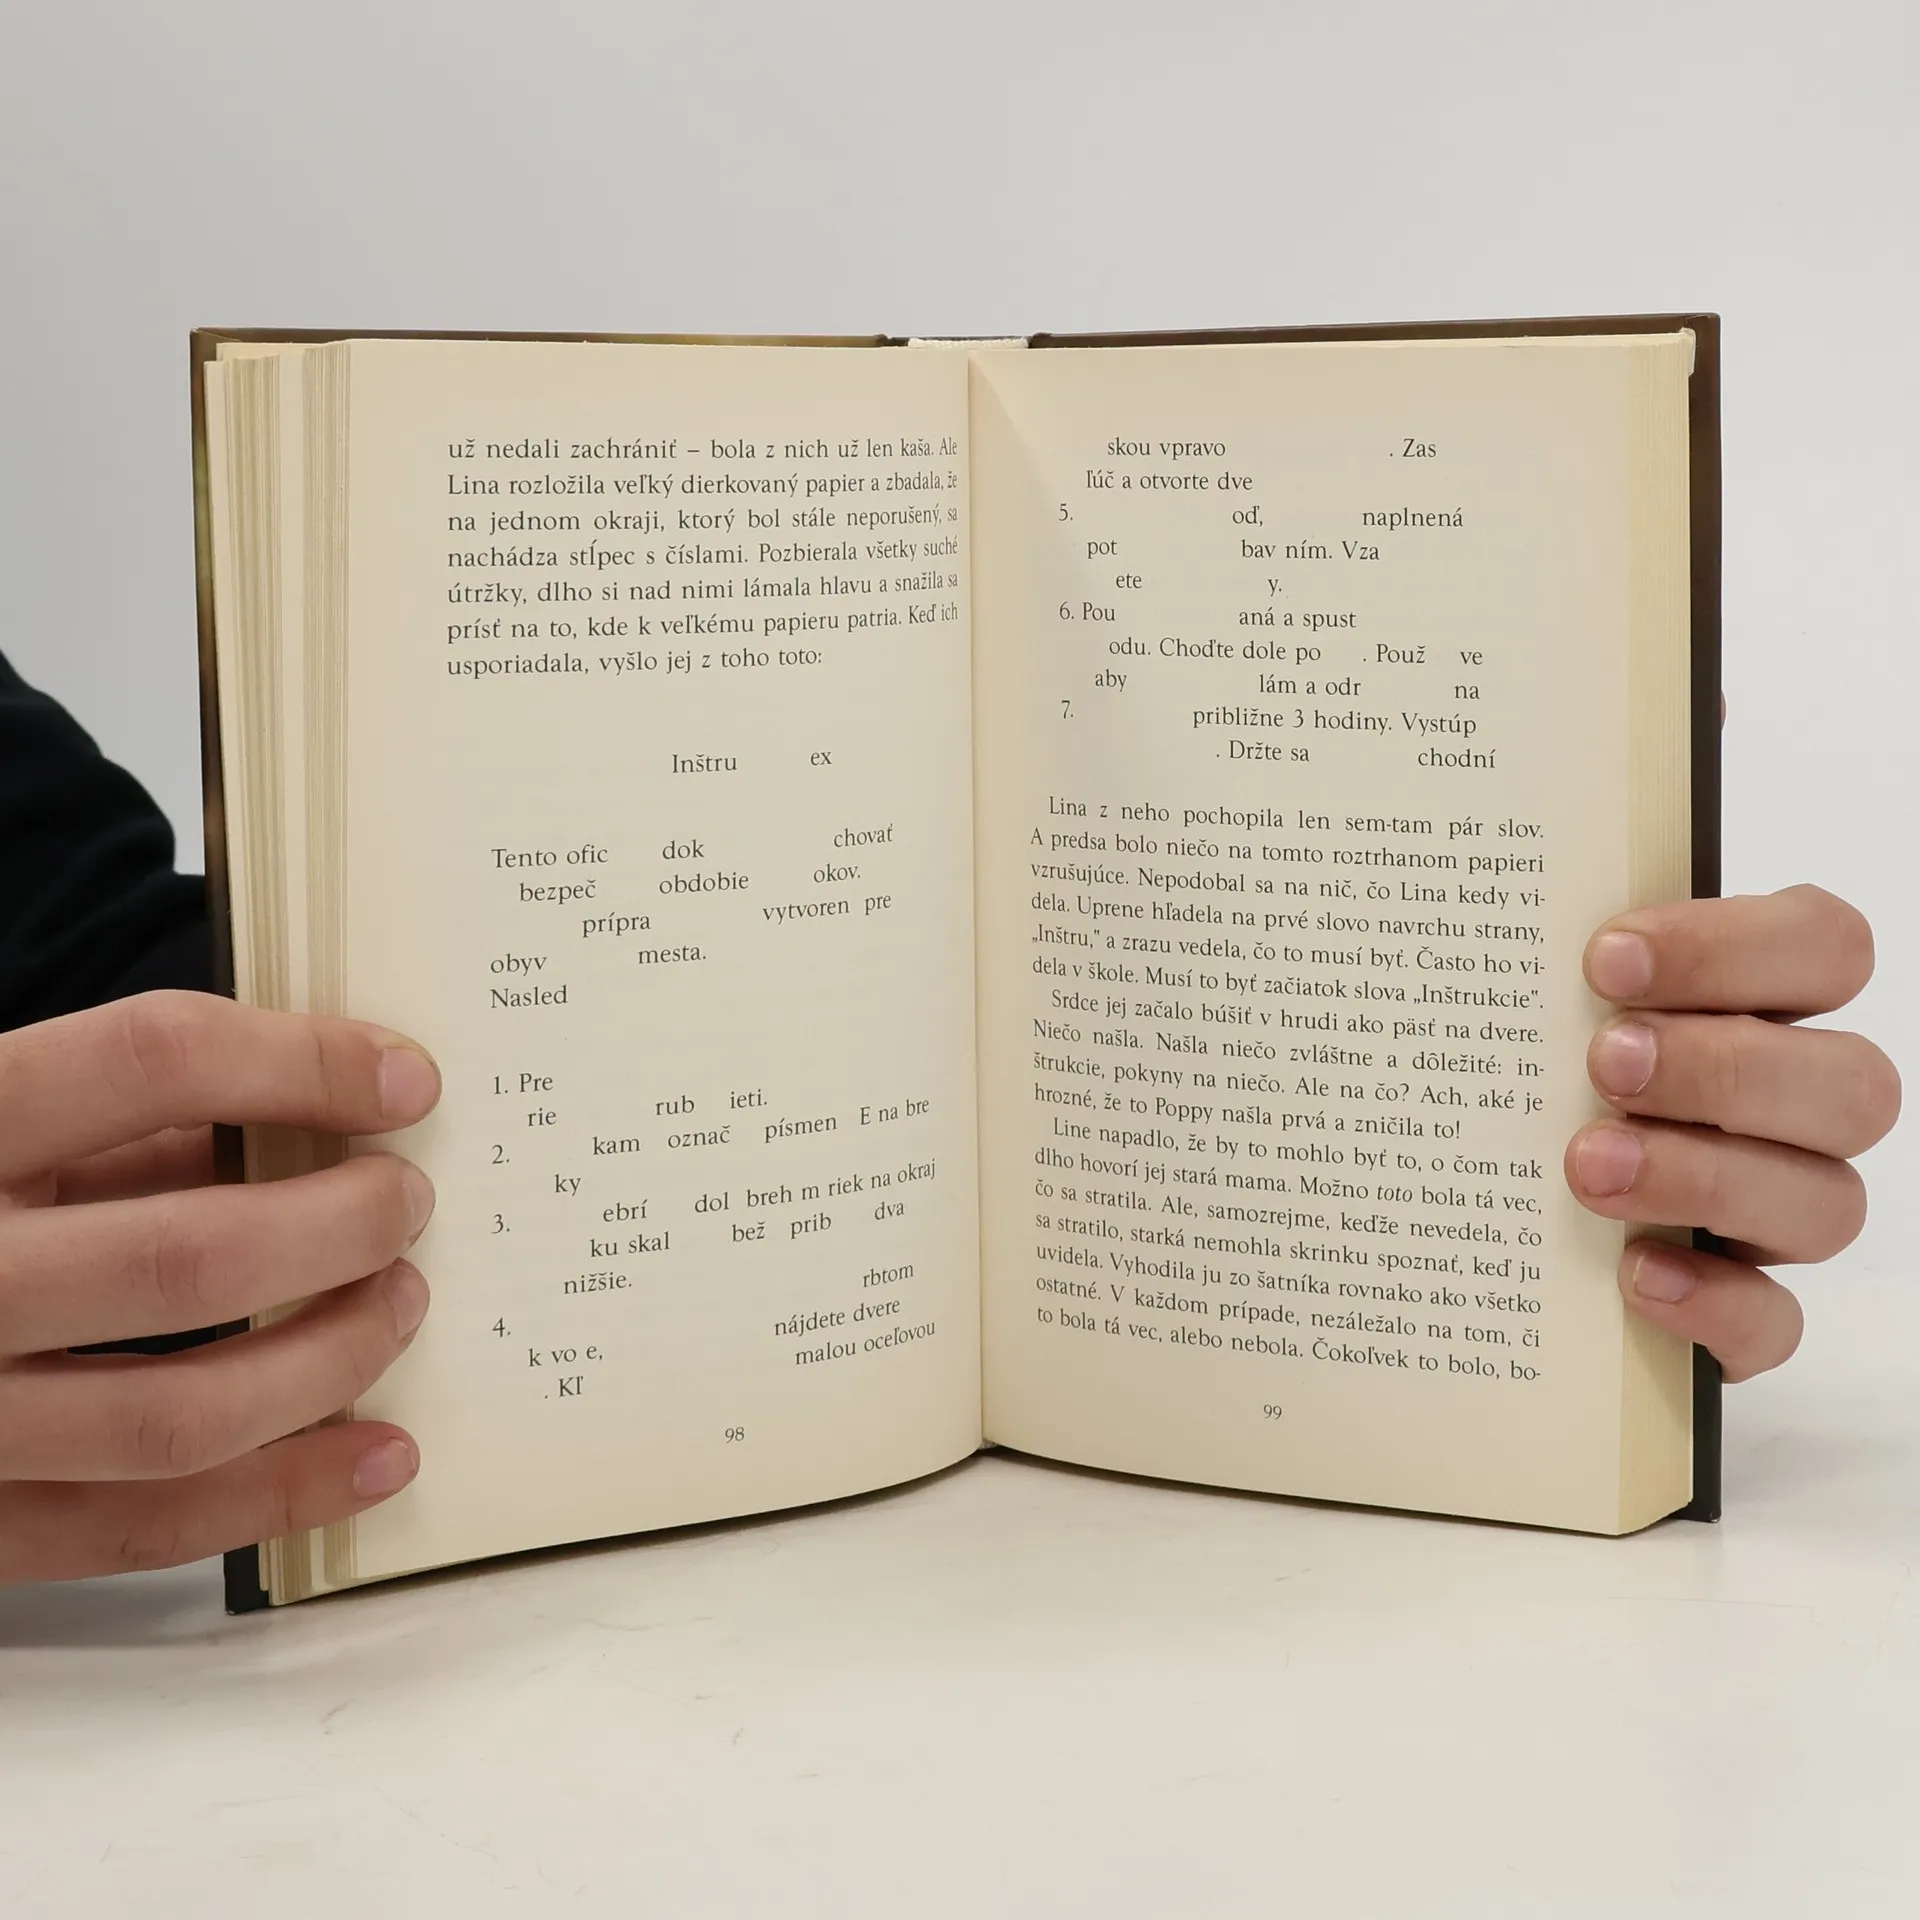 už nedali zachrániť – bola z nich už len kaša. Ale
Lina rozložila veľký dierkovaný papier a zbadala, že
na jednom okraji, ktorý bol stále neporušený, sa
nachádza stĺpec s číslami. Pozbierala všetky suché
útržky, dlho si nad nimi lámala hlavu a snažila sa
prísť na to, kde k veľkému papieru patria. Keď ich
usporiadala, vyšlo jej z toho toto:
Inštru ex
Tento ofic dok chovať
bezpeč obdobie okov.
prípra vytvoren pre
obyv mesta.
Nasled
1. Pre
rie rub ieti.
2. kam označ písmen E na bre
ky
3. ebrí dol breh m riek na okraj
ku skal bež prib dva
nižšie.
4. rbtom
k vo e, nájdete dvere
. Kľ malou oceľovou
98
skou vpravo . Zas
ľúč a otvorte dve
5. oď, naplnená
pot bav ním. Vza
ete y.
6. Pou aná a spust
odu. Choďte dole po . Použ ve
aby lám a odr na
7. približne 3 hodiny. Vystúp
. Držte sa chodní
Lina z neho pochopila len sem-tam pár slov.
A predsa bolo niečo na tomto roztrhanom papieri
vzrušujúce. Nepodobal sa na nič, čo Lina kedy vi-
dela. Uprene hľadela na prvé slovo navrchu strany,
„Inštru,“ a zrazu vedela, čo to musí byť. Často ho vi-
dela v škole. Musí to byť začiatok slova „Inštrukcie“.
Srdce jej začalo búšiť v hrudi ako päsť na dvere.
Niečo našla. Našla niečo zvláštne a dôležité: in-
štrukcie, pokyny na niečo. Ale na čo? Ach, aké je
hrozné, že to Poppy našla prvá a zničila to!
Line napadlo, že by to mohlo byť to, o čom tak
dlho hovorí jej stará mama. Možno toto bola tá vec,
čo sa stratila. Ale, samozrejme, keďže nevedela, čo
sa stratilo, starká nemohla skrinku spoznať, keď ju
uvidela. Vyhodila ju zo šatníka rovnako ako všetko
ostatné. V každom prípade, nezáležalo na tom, či
to bola tá vec, alebo nebola. Čokoľvek to bolo, bo-
99